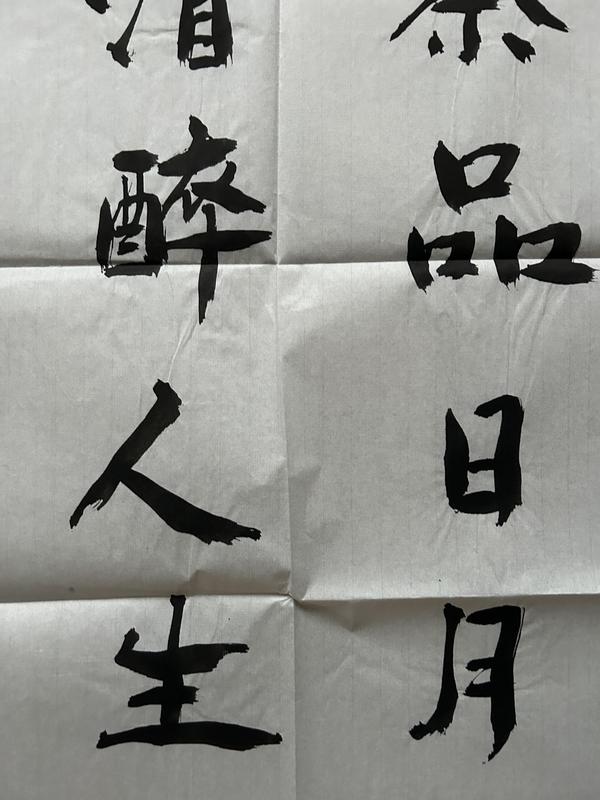 茶品日月
醉人生